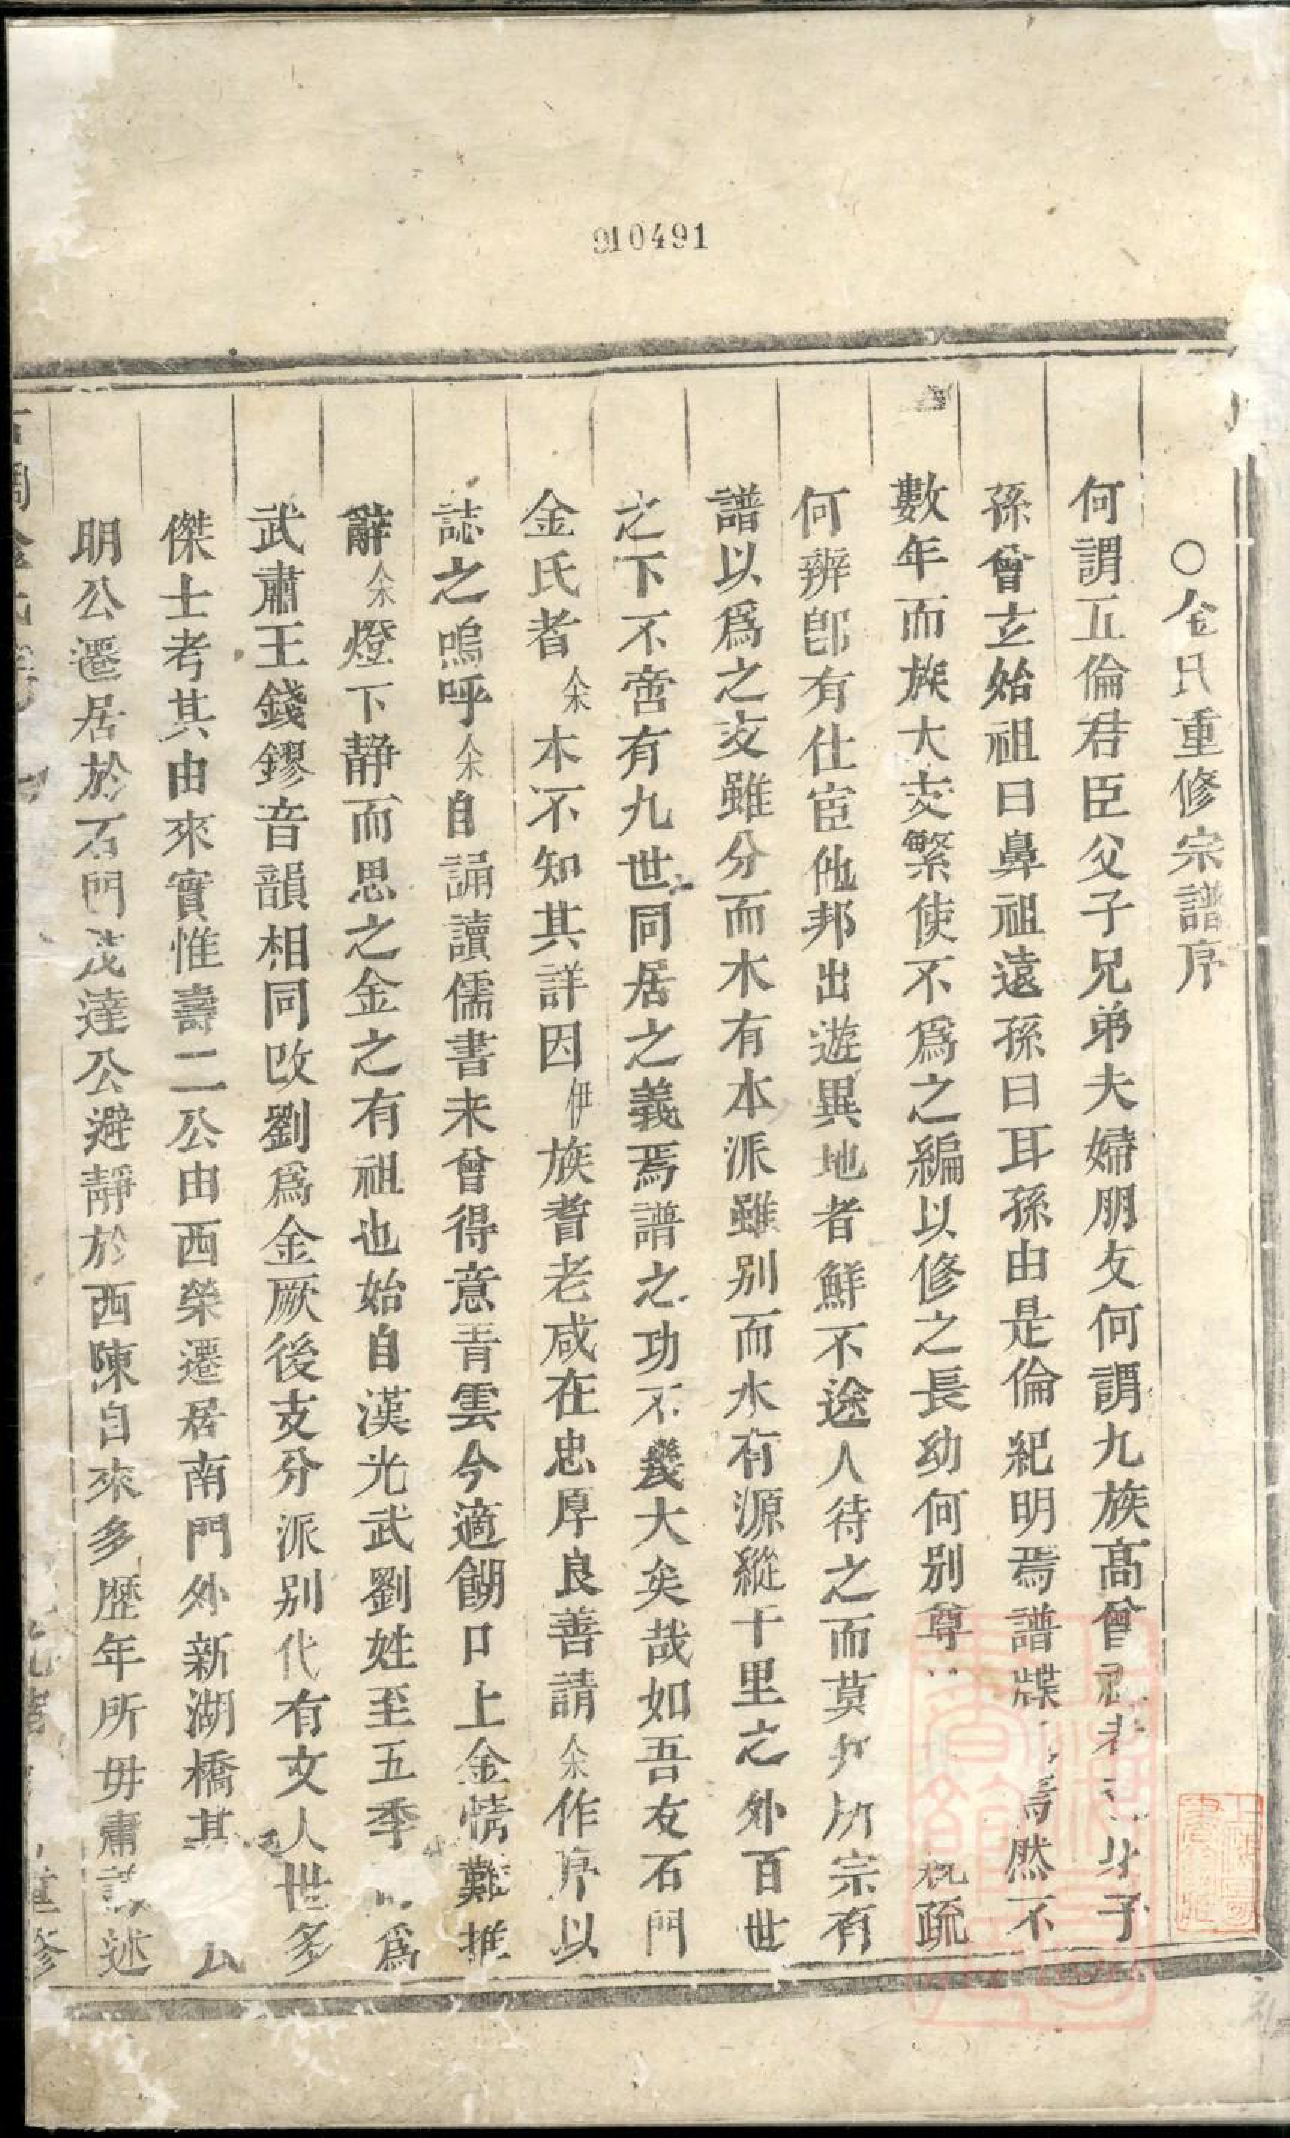 910491
○金氏重修宗譜序
何謂五倫君臣父子兄弟夫婦朋友何謂九族高曾祖考己身子
孫曾玄始祖曰鼻祖遠孫曰耳孫由是倫紀明焉譜牒焉然不
數年而族大支繁使不爲之編以修之長幼何別尊疏
何辨卽有仕宦他邦出遊異地者鮮不途人待之而莫宗有
譜以爲之支雖分而木有本派雖别而水有源縱千里之外百世
之下不啻有九世同居之義焉譜之功不幾大矣哉如吾友石門
金氏者余本不知其詳因伊族耆老咸在忠厚良善請余作序以
誌之嗚呼余自誦讀儒書未曾得意青雲今適餬口上金情難推
辭余燈下静而思之金之有祖也始自漢光武劉姓至五季爲
武肅王錢鏐音韻相同改劉爲金厥後支分派别代有文人世多
傑士考其由來實惟壽二公由西榮遷居南門外新湖橋其公
明公遷居於石門茂達公避靜於西陳自來多歷年所毋庸述